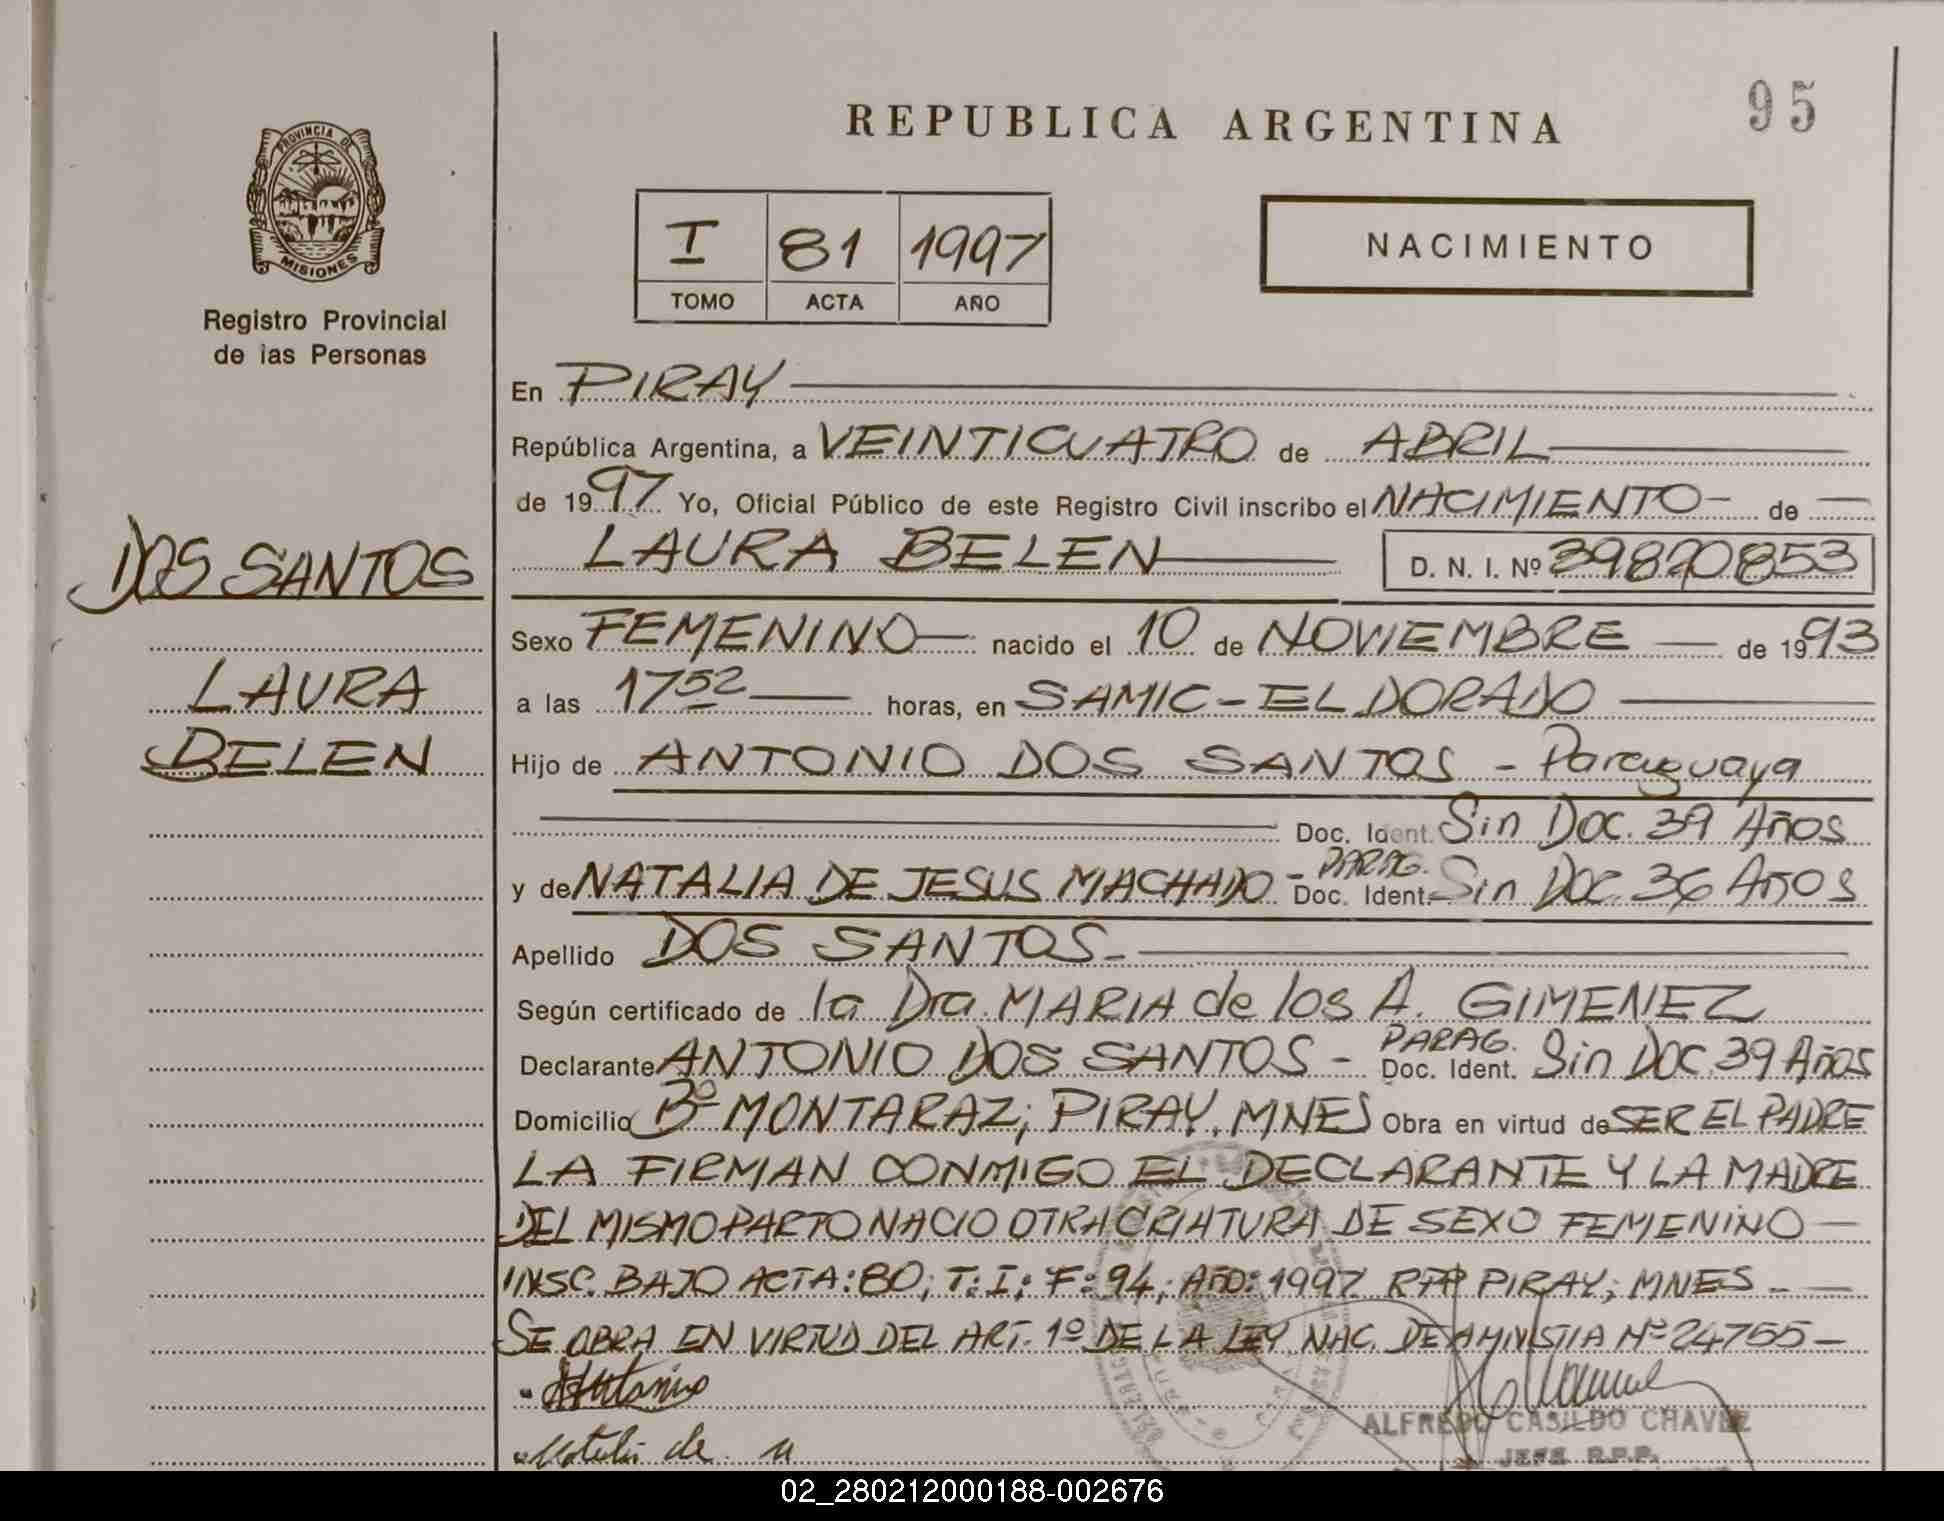 95
REPUBLICA ARGENTINA
PROVINCIA DE
MISIONES
Registro Provincial
de las Personas
I 81 1997
TOMO ACTA AÑO
NACIMIENTO
DOS SANTOS
LAURA
BELEN
En PIRAY
República Argentina, a VEINTICUATRO de ABRIL
de 1997 Yo, Oficial Público de este Registro Civil inscribo el NACIMIENTO - de
LAURA BELEN D. N. I. Nº 39820853
Sexo FEMENINO nacido el 10 de NOVIEMBRE de 1993
a las 17 52 horas, en SAMIC - ELDORADO
Hijo de ANTONIO DOS SANTOS - Paraguaya
Doc. Ident. Sin Doc. 39 Años
y de NATALIA DE JESUS MACHADO - PARAG. Doc. Ident. Sin Doc. 36 Años
Apellido DOS SANTOS
Según certificado de la Dra. MARIA de los A. GIMENEZ
Declarante ANTONIO DOS SANTOS - PARAG. Doc. Ident. Sin Doc. 39 Años
Domicilio Bº MONTARAZ; PIRAY, MNES Obra en virtud de SER EL PADRE
LA FIRMAN CONMIGO EL DECLARANTE Y LA MADRE
DEL MISMO PARTO NACIO OTRA CRIATURA DE SEXO FEMENINO
INSC. BAJO ACTA: 80; T: I; F: 94; AÑO: 1997. RPP PIRAY; MNES
SE OBRA EN VIRTUD DEL ART. 1º DE LA LEY NAC. DE AMNISTIA Nº 24755 -
ALFREDO CASILDO CHAVEZ
JEFE R.P.P.
02_280212000188-002676